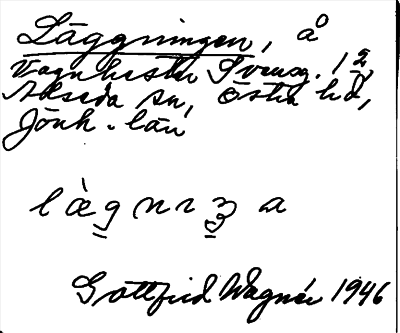 Läggningen, å
Vagnhester Svensg. 1 2,
Alseda sn, Östra hd,
Jönk. län
l æ̀ g n ı ʒ a
Gottfrid Wagnér 1946